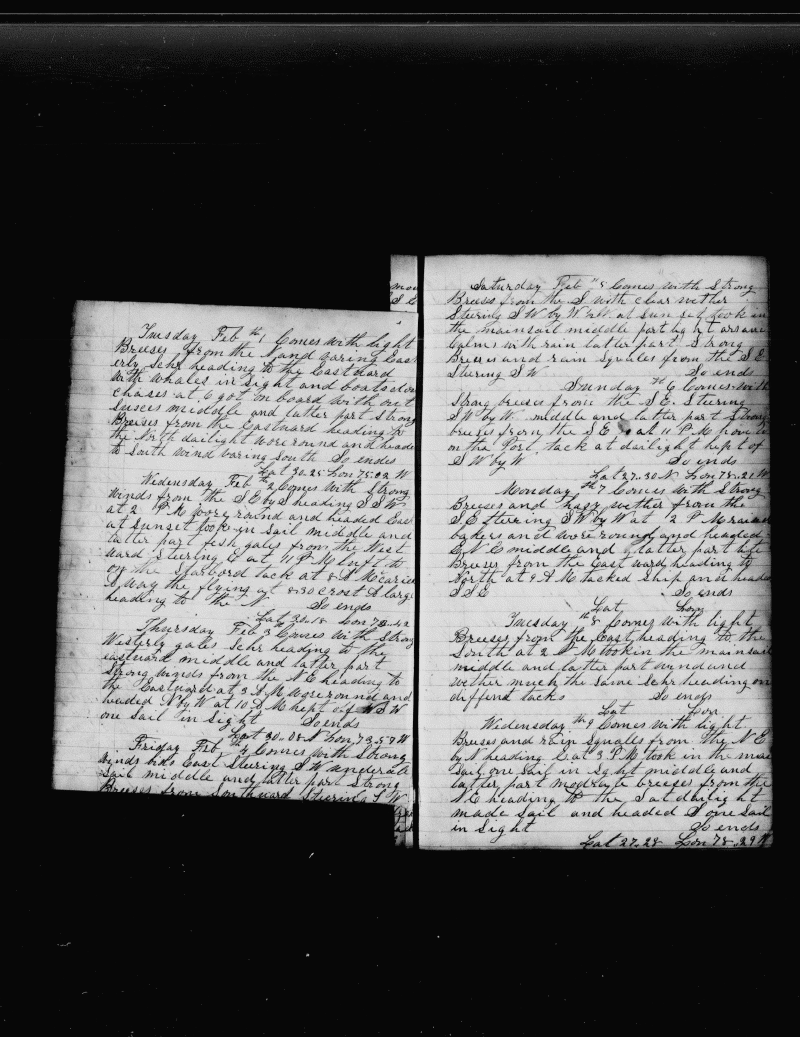 Tuesday Feb th 1 Comes with light
Breeses from the N and varing East
erly Schr heading to the Eastward
with whales in sight and boats down
chases at 6 got on board with out
Susces middle and latter part Strong
Breeses from the Eastward heading to
the North dailight wore round and headed
to South wind varing South So endes
Lat 30..25 Lon 75..02 W
Wednesday Feb th 2 Comes with Strong
Winds from the S E by S heading S S W
at 2 P M wore round and headed East
at Sunset took in Sail middle and
latter part fresh gales from the West
ward Steering E at 11 P M luft to
on the Starbord tack at 8 A M caried
a way the flying at 8..30 crost A large
heading to the N So ends
Lat 30..18 Lon 74..42
Thursday Feb th 3 Comes with Strong
Westerly gales Schr heading to the
eastward middle and latter part
Strong winds from the N E heading to
the Eastward at 3 A M wore round and
headed N by W at 10 A M kept of W S W
one Sail in Sight So ends
Lat 30..08 N Lon 73..58 W
Friday Feb th 4 Comes with Strong
Winds East Steering S W
Sail middle and latter part Strong
Breeses from Southward Steering S W
Saturday Feb th 5 Comes with Strong
Breeses from the S with clear wether
Steering S W by W at Sun Set took in
the mainsail middle part light
Calms with rain latter part Strong
Breeses and rain Squales from the S E
Stering S W So ends
Sunday th 6 Comes with
Strong breeses from the S E Steering
S W by W middle and latter part Strong
breeses from the S E at 11 P M
on the Port tack at dailight kept of
S W by W So ends
Lat 27..30 N Lon 78..21 W
Monday th 7 Comes with Strong
Breeses and hasy wether from the
S E Steering S W by W at 2 P M
and wore round and headed
E N E middle and latter part
Breeses from the Eastward heading to
North at 9 A M tacked Ship and headed
S S E So ends
Lat Lon
Tuesday th 8 Comes with light
Breeses from the East heading to the
South at 2 P M took in the mainsail
middle and latter part wind and
wether much the same Schr heading on
differd tacks So ends
Lat Lon
Wednesday th 9 Comes with light
Breeses and rain Squales from the N E
by N heading E at 3 P M took in the main
Sail one Sail in Sight middle and
latter part moderate breeses from the
N E heading to the S at dailight
made Sail and headed S one Sail
in Sight So ends
Lat 27..28 Lon 78..29 W